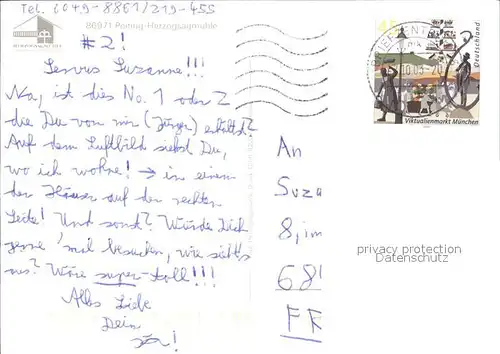 Tel. 0049-8861/219-455
86971 Peiting-Herzogsägmühle
#2!
Servus Suzanne!!!
Na, ist dies No. 1 oder 2
die Du von mir (Jürgen) erhältst?
Auf dem Luftbild siehst Du,
wo ich wohne! → in einem
der Häuser auf der rechten
Seite! Und sonst? Würde Dich
gerne 'mal besuchen, wie sieht's
aus? Wäre super-toll!!!
Alles Liebe
Dein
An
Suza
8, im
68
FF
45
Deutschland
Viktualienmarkt München
BRIEFZENTRUM
privacy protection
Datenschutz